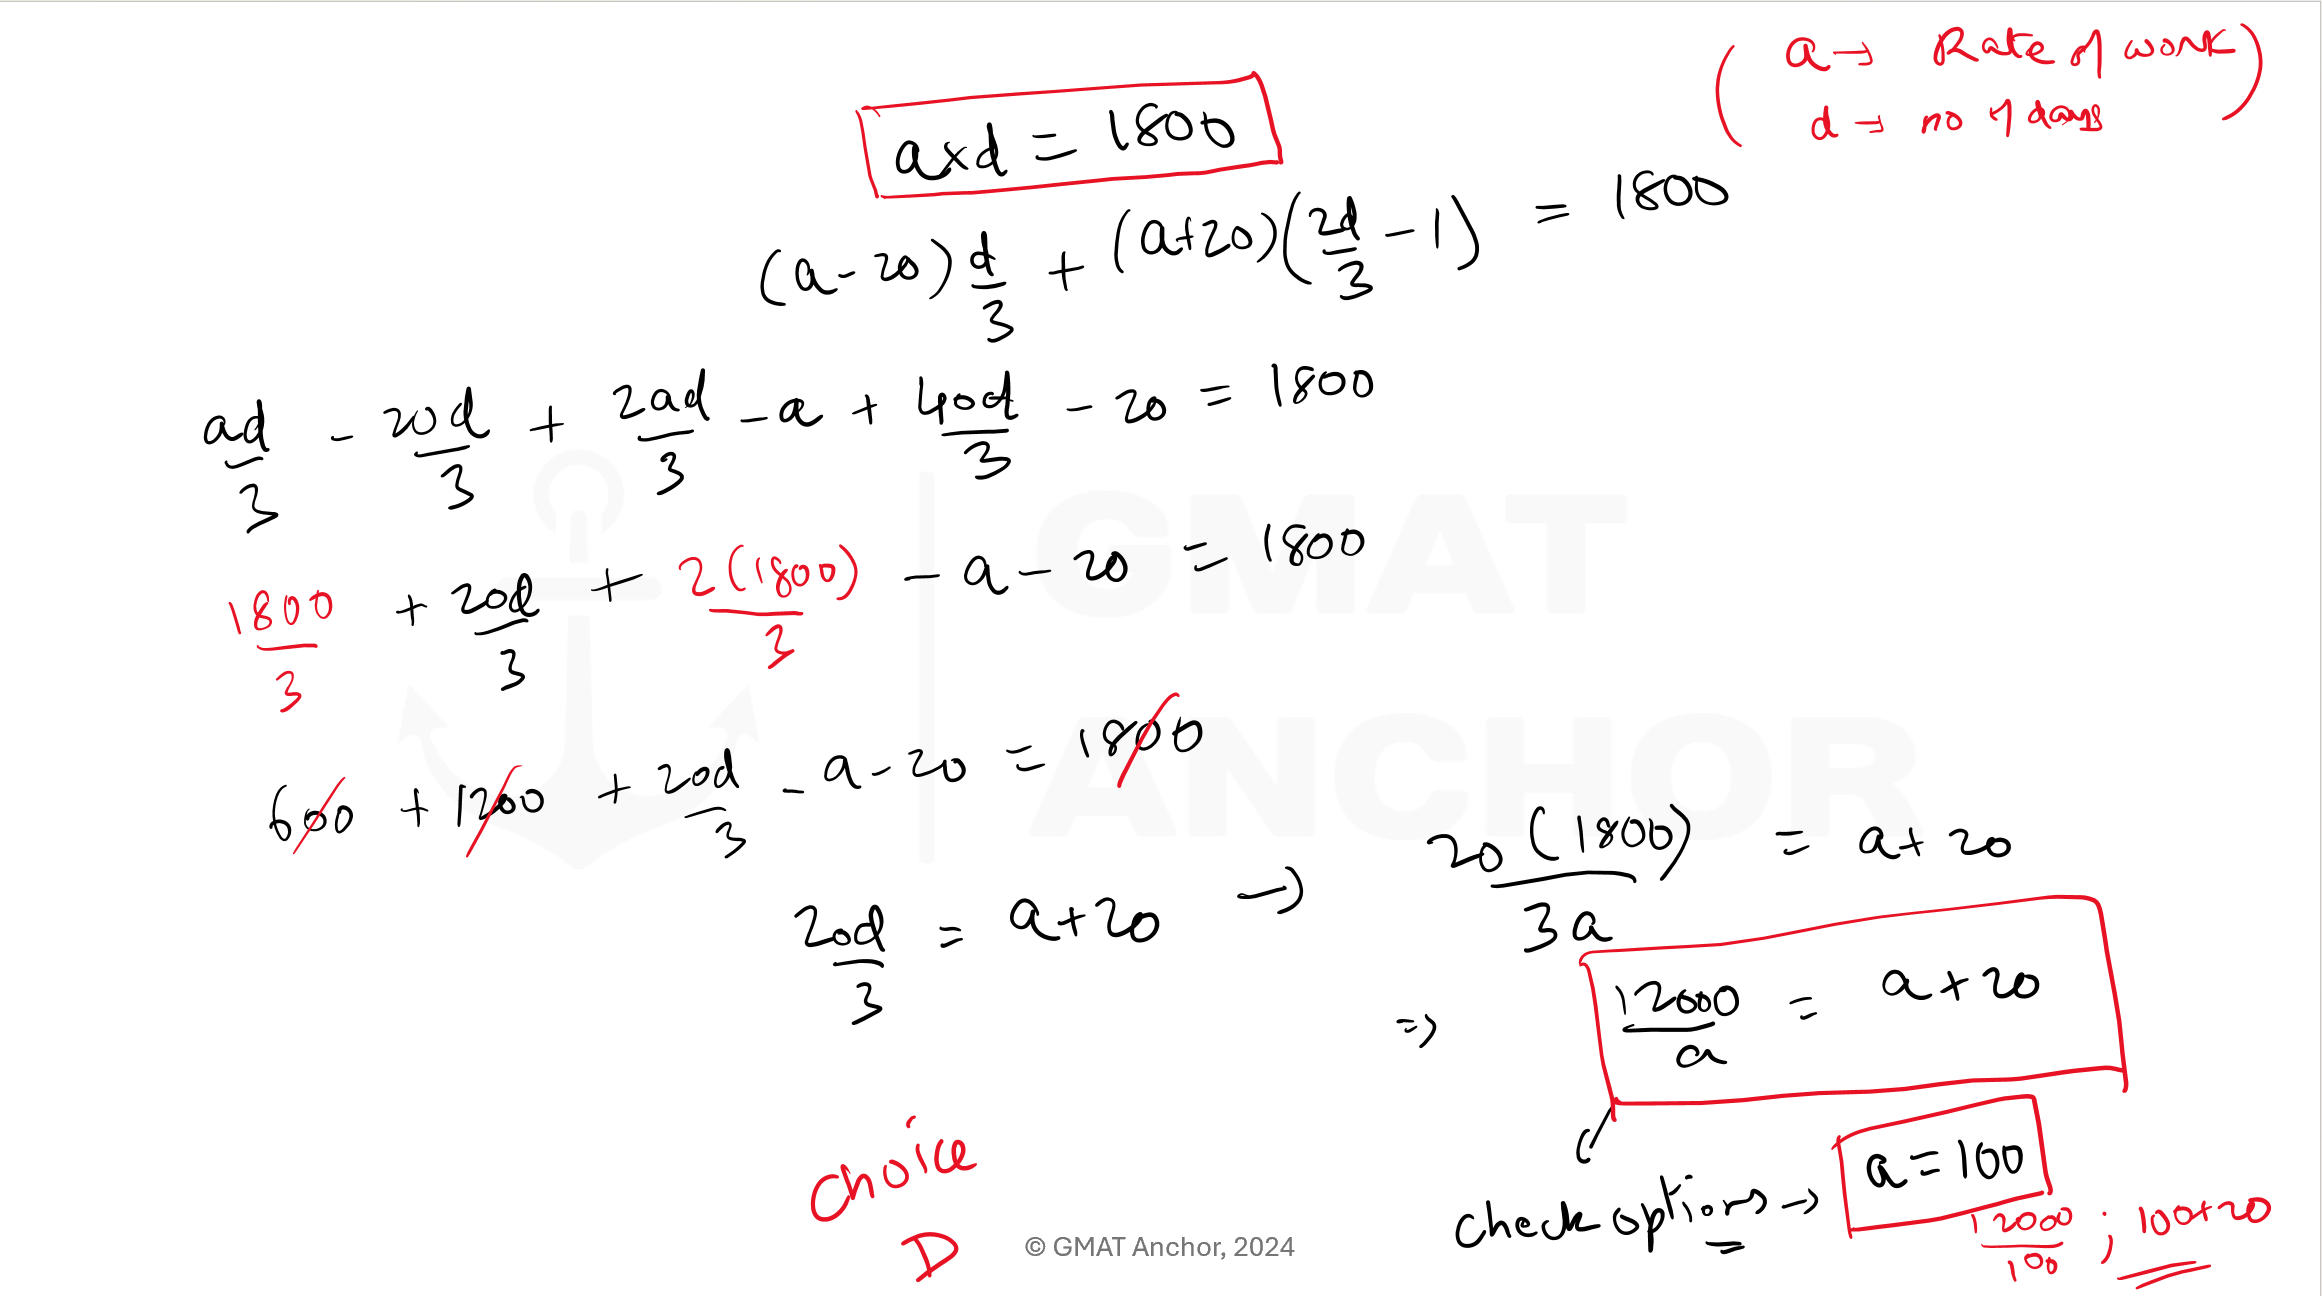 ( a → Rate of work
d → no of days )
a×d = 1800
(a-20) d/3 + (a+20)(2d/3 - 1) = 1800
ad/3 - 20d/3 + 2ad/3 - a + 40d/3 - 20 = 1800
1800/3 + 20d/3 + 2(1800)/3 - a - 20 = 1800
600 + 1200 + 20d/3 - a - 20 = 1800
20d/3 = a+20 → 20(1800)/3a = a+20
=> 12000/a = a+20
check options → a = 100
12000/100 ; 100+20
Choice
D
GMAT
ANCHOR
© GMAT Anchor, 2024